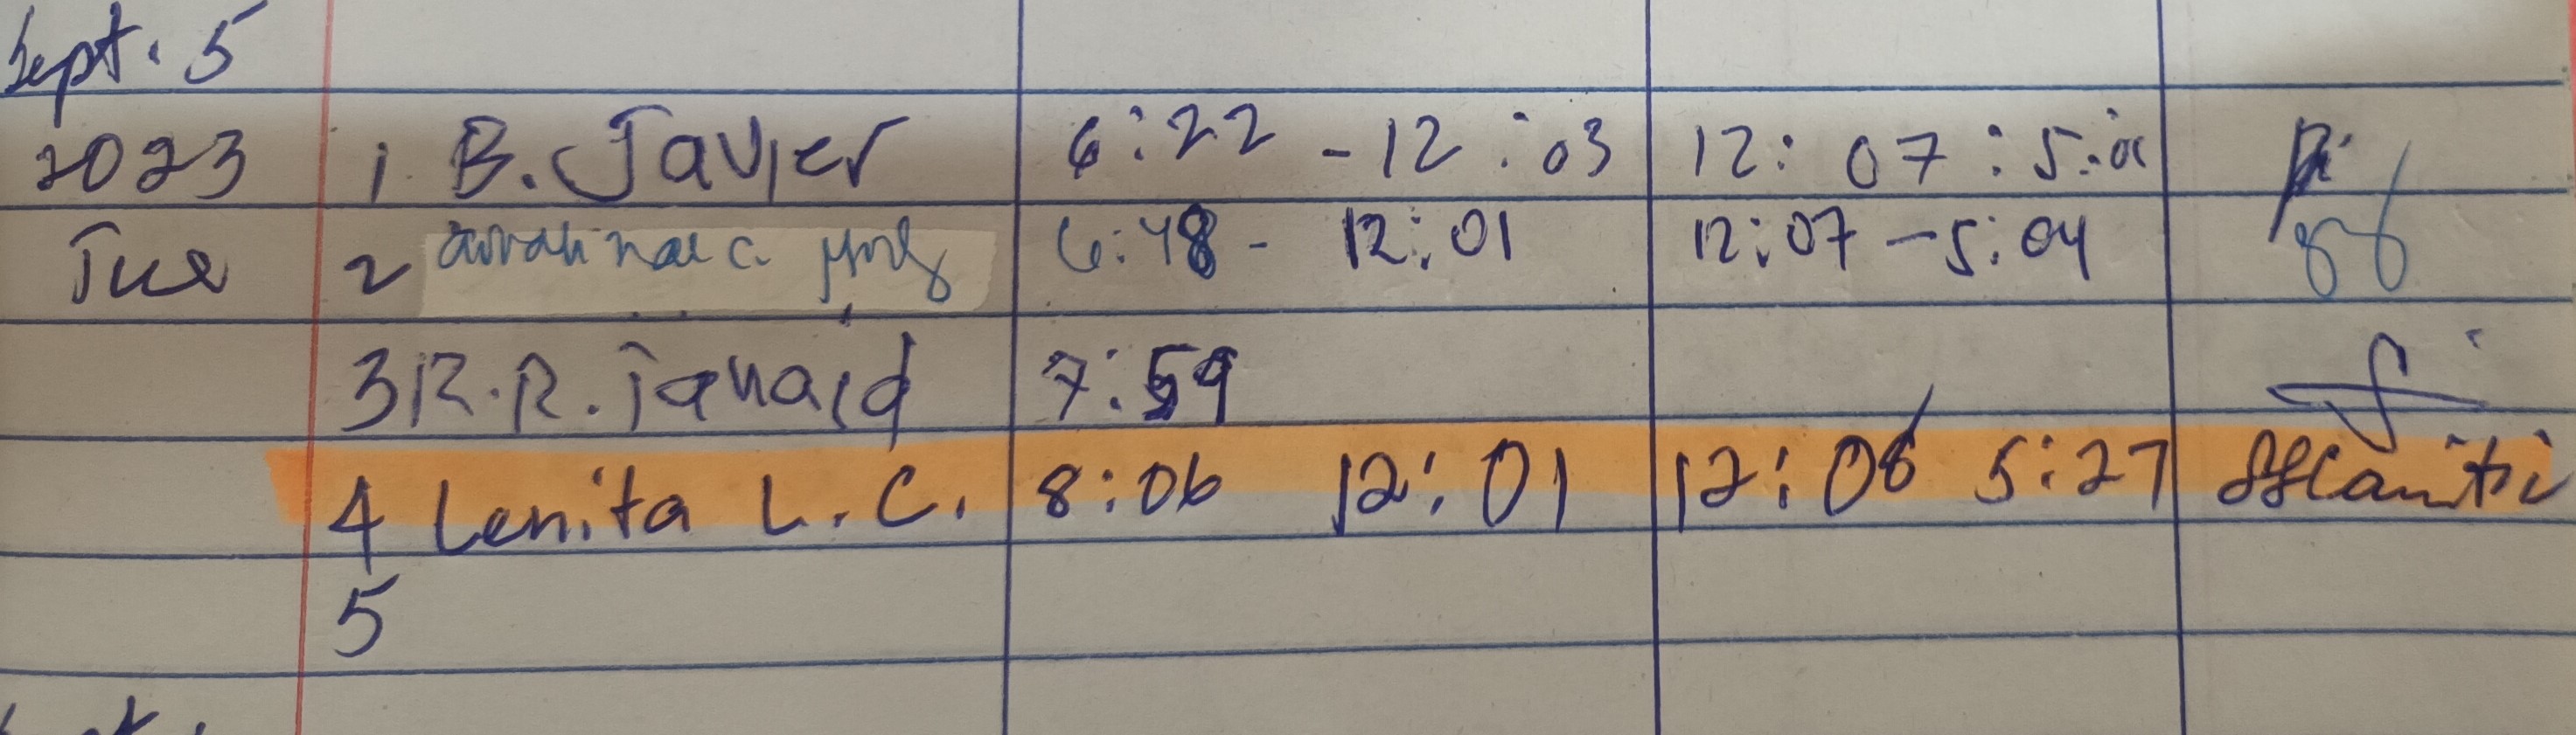 Sept. 5
2023 1 B. Javier 6:22 - 12:03 12:07 :
Tue 2 6:48 - 12:01 12:07 - 5:04
3 R.R. 7:59
4 Lenita L.C. 8:06 12:01 12:06 5:27
5